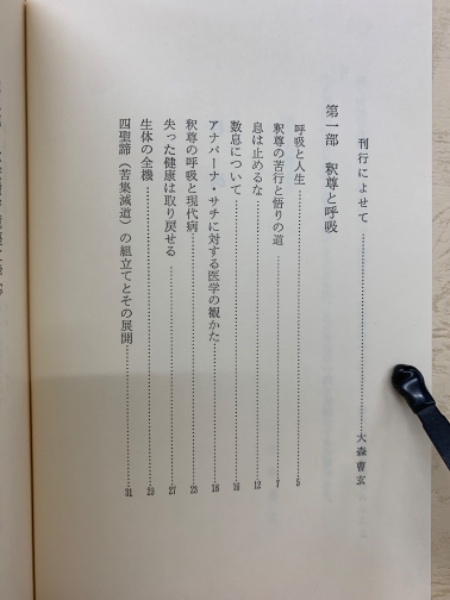 刊行によせて……………………大森曹玄
第一部　釈尊と呼吸
呼吸と人生……………………5
釈尊の苦行と悟りの道……………………7
息は止めるな……………………12
数息について……………………16
アナパーナ・サチに対する医学の観かた……………………18
釈尊の呼吸と現代病……………………23
失った健康は取り戻せる……………………27
生体の全機……………………29
四聖諦（苦集滅道）の組立てとその展開……………………31